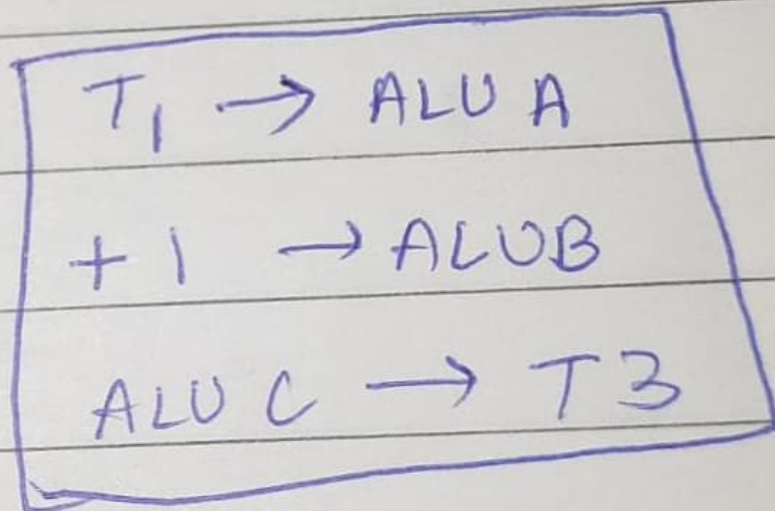 T₁ → ALU A
+1 → ALUB
ALU C → T3